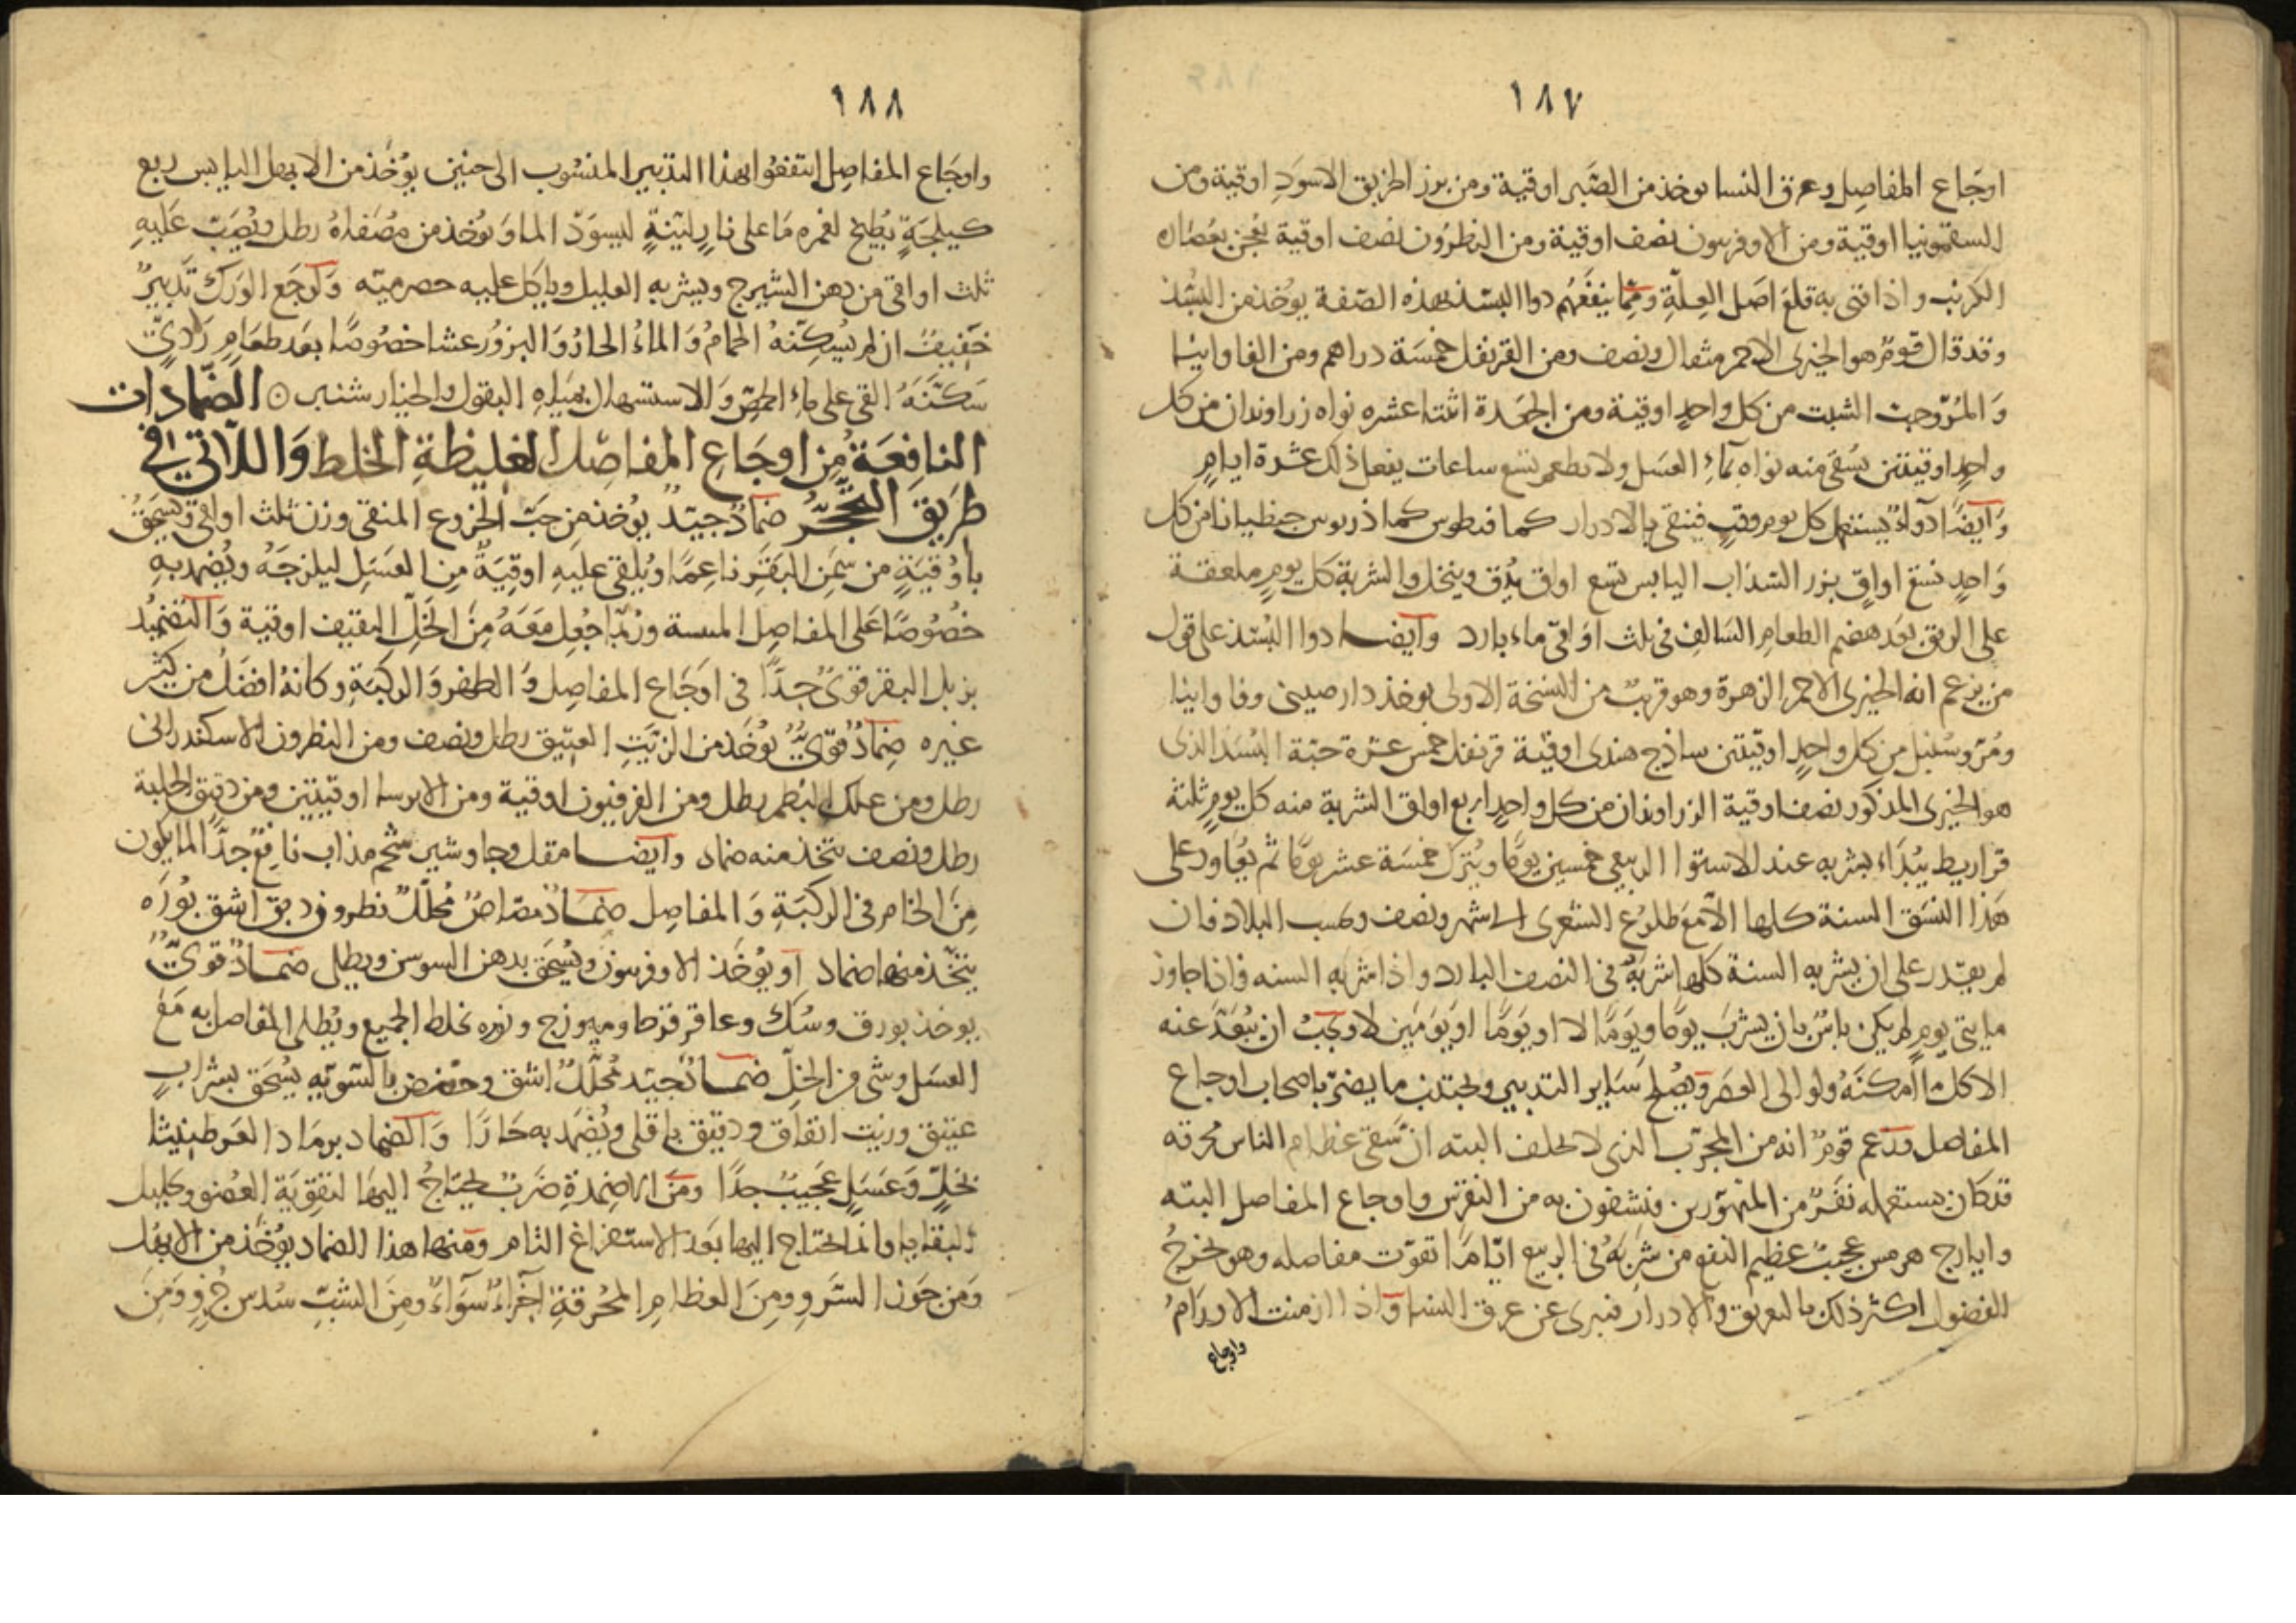 ١٨٧
اوجاع المفاصل وعرق النسا يوخذ من الصبر اوقية ومن بزر الخربق الاسود اوقية ومن
السقمونيا اوقية ومن الاوفربيون نصف اوقية ومن النطرون نصف اوقية يعجن بعصارة
الكرنب واذا قتى به قلع اصل العلة ومما ينفعهم دوا البسد بهذه الصفة يوخذ من البسد
وقد قال قوم هو الخيرى الاحمر مثقال ونصف ومن القرنفل خمسة دراهم ومن الفاوانيا
والمر وحب الشبت من كل واحد اوقية ومن الجعدة اثنتا عشره نواه زراوندان من كل
واحد اوقيتين يسقى منه نواه بماء العسل ولا يطعم تسع ساعات يفعل ذلك عشرة ايام
وايضا دواء يستعمل كل يوم وقت فينقى بالادرار كمافيطوس كماذريوس جنطيانا من كل
واحد تسع اواق بزر السذاب اليابس تسع اواق يدق وينخل والشربة كل يوم ملعقة
على الريق بعد هضم الطعام السالف فى ثلث اواقى ماء بارد وايضا دوا البسد على قول
من يزعم انه الخيرى الاحمر الزهرة وهو قريب من النسخة الاولى يوخذ دارصينى وفاوانيا
ومر وسنبل من كل واحد اوقيتين ساذج هندى اوقية قرنفل خمس عشرة حبة البسد الذى
هو الخيرى المذكور نصف اوقية الزراوندان من كل واحد اربع اواق الشربة منه كل يوم ثلثة
قراريط يبداء بشربه عند الاستوا الربيعى خمسين يوما ويترك خمسة عشر يوما ثم يعاود على
هذا النسق السنة كلها الا مع طلوع الشعرى الى شهر ونصف وحسب البلاد فان
لم يقدر على ان يشربه السنة كلها شربه فى النصف البارد واذا شربه السنه فاذا جاوز
مايتى يوم لم يكن باس بان يشرب يوما ويوما لا او يوما او يومين لا ويجب ان يبعد عنه
الاكل ما امكنه ولو الى العصر ويصلح ساير التدبير ويجتنب ما يضر باصحاب اوجاع
المفاصل وزعم قوم انه من المجرب الذى لا يخلف البته ان تسقى عظام الناس محرقه
قد كان يستعمله نفر من المتهورين فيشفون به من النقرس واوجاع المفاصل البته
وايارج هرمس عجيب عظيم النفع من شربه فى الربيع اياما تقوت مفاصله وهو يخرج
الفضول اكثر ذلك بالعرق والادرار فيبرى عن عرق النسا واذا ازمنت الاورام
واوجاع
١٨٨
واوجاع المفاصل انتفعوا بهذا التدبير المنسوب الى حنين يوخذ من الابهل اليابس ربع
كيلجة يطبخ لغمره ما على نار لينة ليسود الما ويوخذ من مصفاه رطل ويصب عليه
ثلث اواقى من دهن الشيرج ويشربه العليل وياكل عليه حصرميه ولوجع الورك تدبير
خفيف ان لم يسكنه الحمام والماء الحار والبزور عشا خصوصا بعد طعام ردى
سكنه القى على ماء الحمص والاستسهال بمياه البقول والخيار شنبر ۞ الضمادات
النافعة من اوجاع المفاصل الغليظة الخلط واللاتى فى
طريق التحجر ضماد جيد يوخذ من حب الخروع المنقى وزن ثلث اواقى ويسحق
باوقية من سمن البقر ناعما ويلقى عليه اوقية من العسل ليلزجه ويضمد به
خصوصا على المفاصل اليبسة وربما جعل معه من الخل الثقيف اوقية والتضميد
بزبل البقر قوى جدا فى اوجاع المفاصل والظهر والركبة وكانه افضل من كثير
غيره ضماد قوى يوخذ من الزيت العتيق رطل ونصف ومن النطرون الاسكندرانى
رطل ومن علك البطم رطل ومن الفرفيون اوقية ومن الايرسا اوقيتين ومن دقيق الحلبة
رطل ونصف يتخذ منه ضماد وايضا مقل وجاوشير شحم مذاب نافع جدا لما يكون
من الخام فى الركبة والمفاصل ضماد مصاص محلل نطرون دبق اشق بوره
يتخذ منها ضماد او يوخذ الاوفربيون ويسحق بدهن السوسن ويطلى ضماد قوى
يوخذ بورق وسك وعاقرقرحا وميوزج ونوره يخلط الجميع ويطلى المفاصل به مع
العسل وشى من الخل ضماد جيد محلل اشق وحضض بالسويه يسحق بشراب
عتيق وزيت انفاق ودقيق باقلى ويضمد به حارا والضماد برماد العرطنيثا
بخل وعسل عجيب جدا ومن الاضمدة ضرب يحتاج اليها لتقوية العضو وتحليل
البقايا وانما يحتاج اليها بعد الاستفراغ التام ومنها هذا الضماد يوخذ من الابهل
ومن جوز السرو ومن العظام المحرقة اجزاء سواء ومن الشب سدس جزو ومن